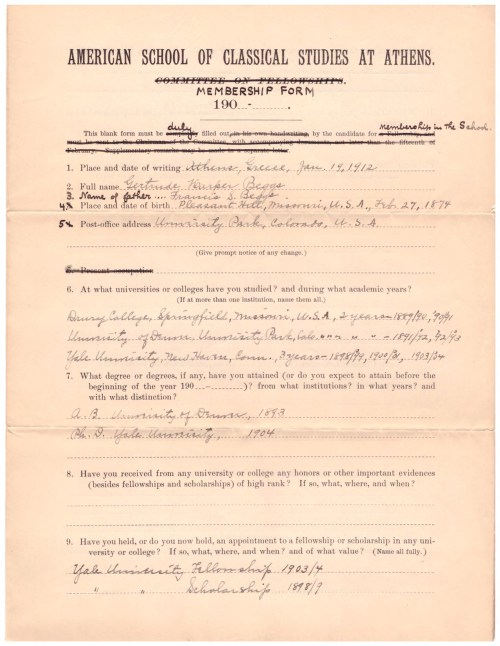 AMERICAN SCHOOL OF CLASSICAL STUDIES AT ATHENS.
COMMITTEE ON FELLOWSHIPS.
MEMBERSHIP FORM
190 - .
duly membership in the School.
This blank form must be filled out in his own handwriting, by the candidate for a Fellowship, and
must be sent to the Chairman of the Committee with accompanying documents, not later than the fifteenth of
February. Supplementary remarks may be made in a separate letter.
1. Place and date of writing Athens, Greece, Jan. 19, 1912
2. Full name Gertrude Harper Beggs
3. Name of father .... Francis S. Beggs
4. Place and date of birth Pleasant Hill, Missouri, U.S.A., Feb. 27, 1874
5. Post-office address University Park, Colorado, U.S.A.
(Give prompt notice of any change.)
Present occupation
6. At what universities or colleges have you studied? and during what academic years?
(If at more than one institution, name them all.)
Drury College, Springfield, Missouri, U.S.A, 2 years - 1889/90, 90/91
University of Denver, University Park, Colo. " " - 1891/92, 92/93
Yale University, New Haven, Conn. - 3 years - 1898/99, 1900/01, 1903/04
7. What degree or degrees, if any, have you attained (or do you expect to attain before the
beginning of the year 190 - )? from what institutions? in what years? and
with what distinction?
A.B. University of Denver, 1893
Ph.D. Yale University, 1904
8. Have you received from any university or college any honors or other important evidences
(besides fellowships and scholarships) of high rank? If so, what, where, and when?
9. Have you held, or do you now hold, an appointment to a fellowship or scholarship in any uni-
versity or college? If so, what, where, and when? and of what value? (Name all fully.)
Yale University Fellowship 1903/4
" " Scholarship 1898/9